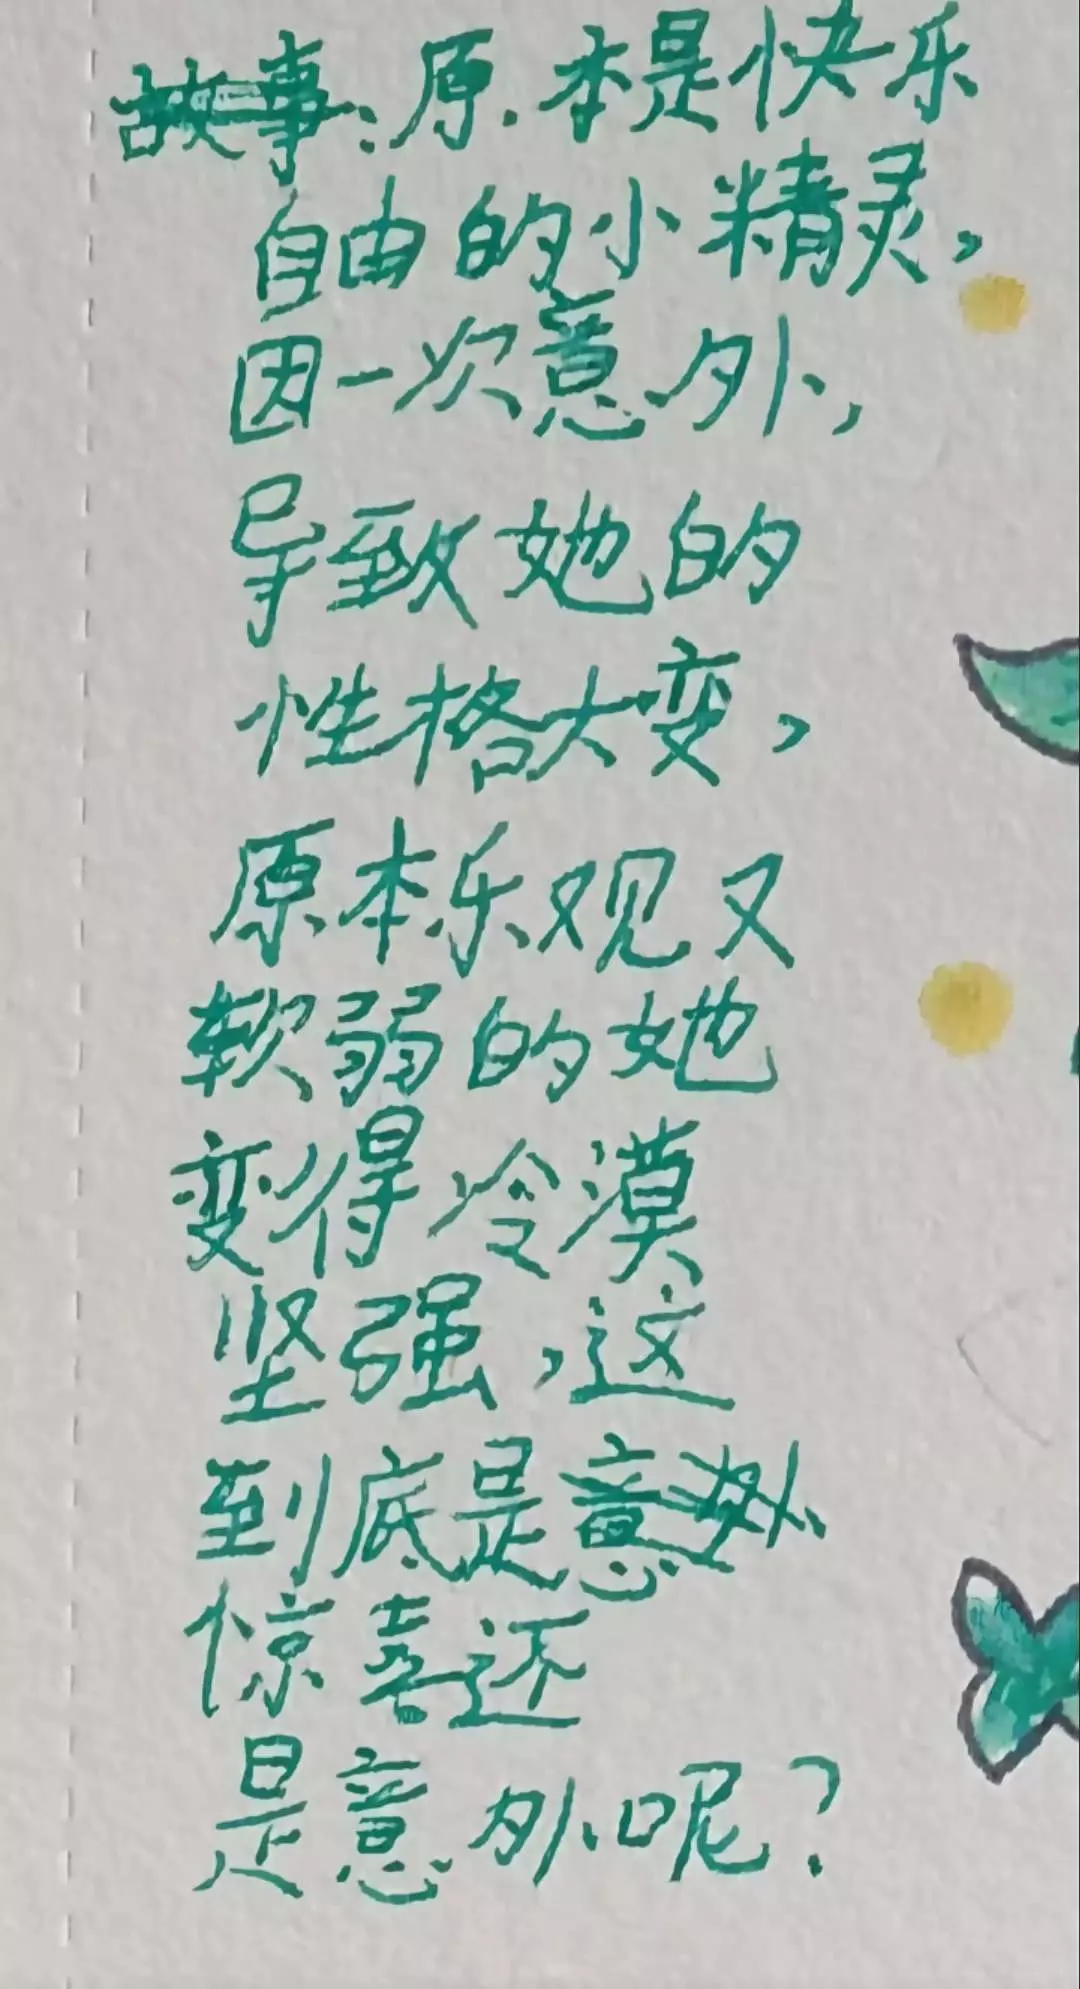 故事:原本是快乐
自由的小精灵,
因一次意外,
导致她的
性格大变,
原本乐观又
软弱的她
变得冷漠
坚强,这
到底是意外
惊喜还
是意外呢?